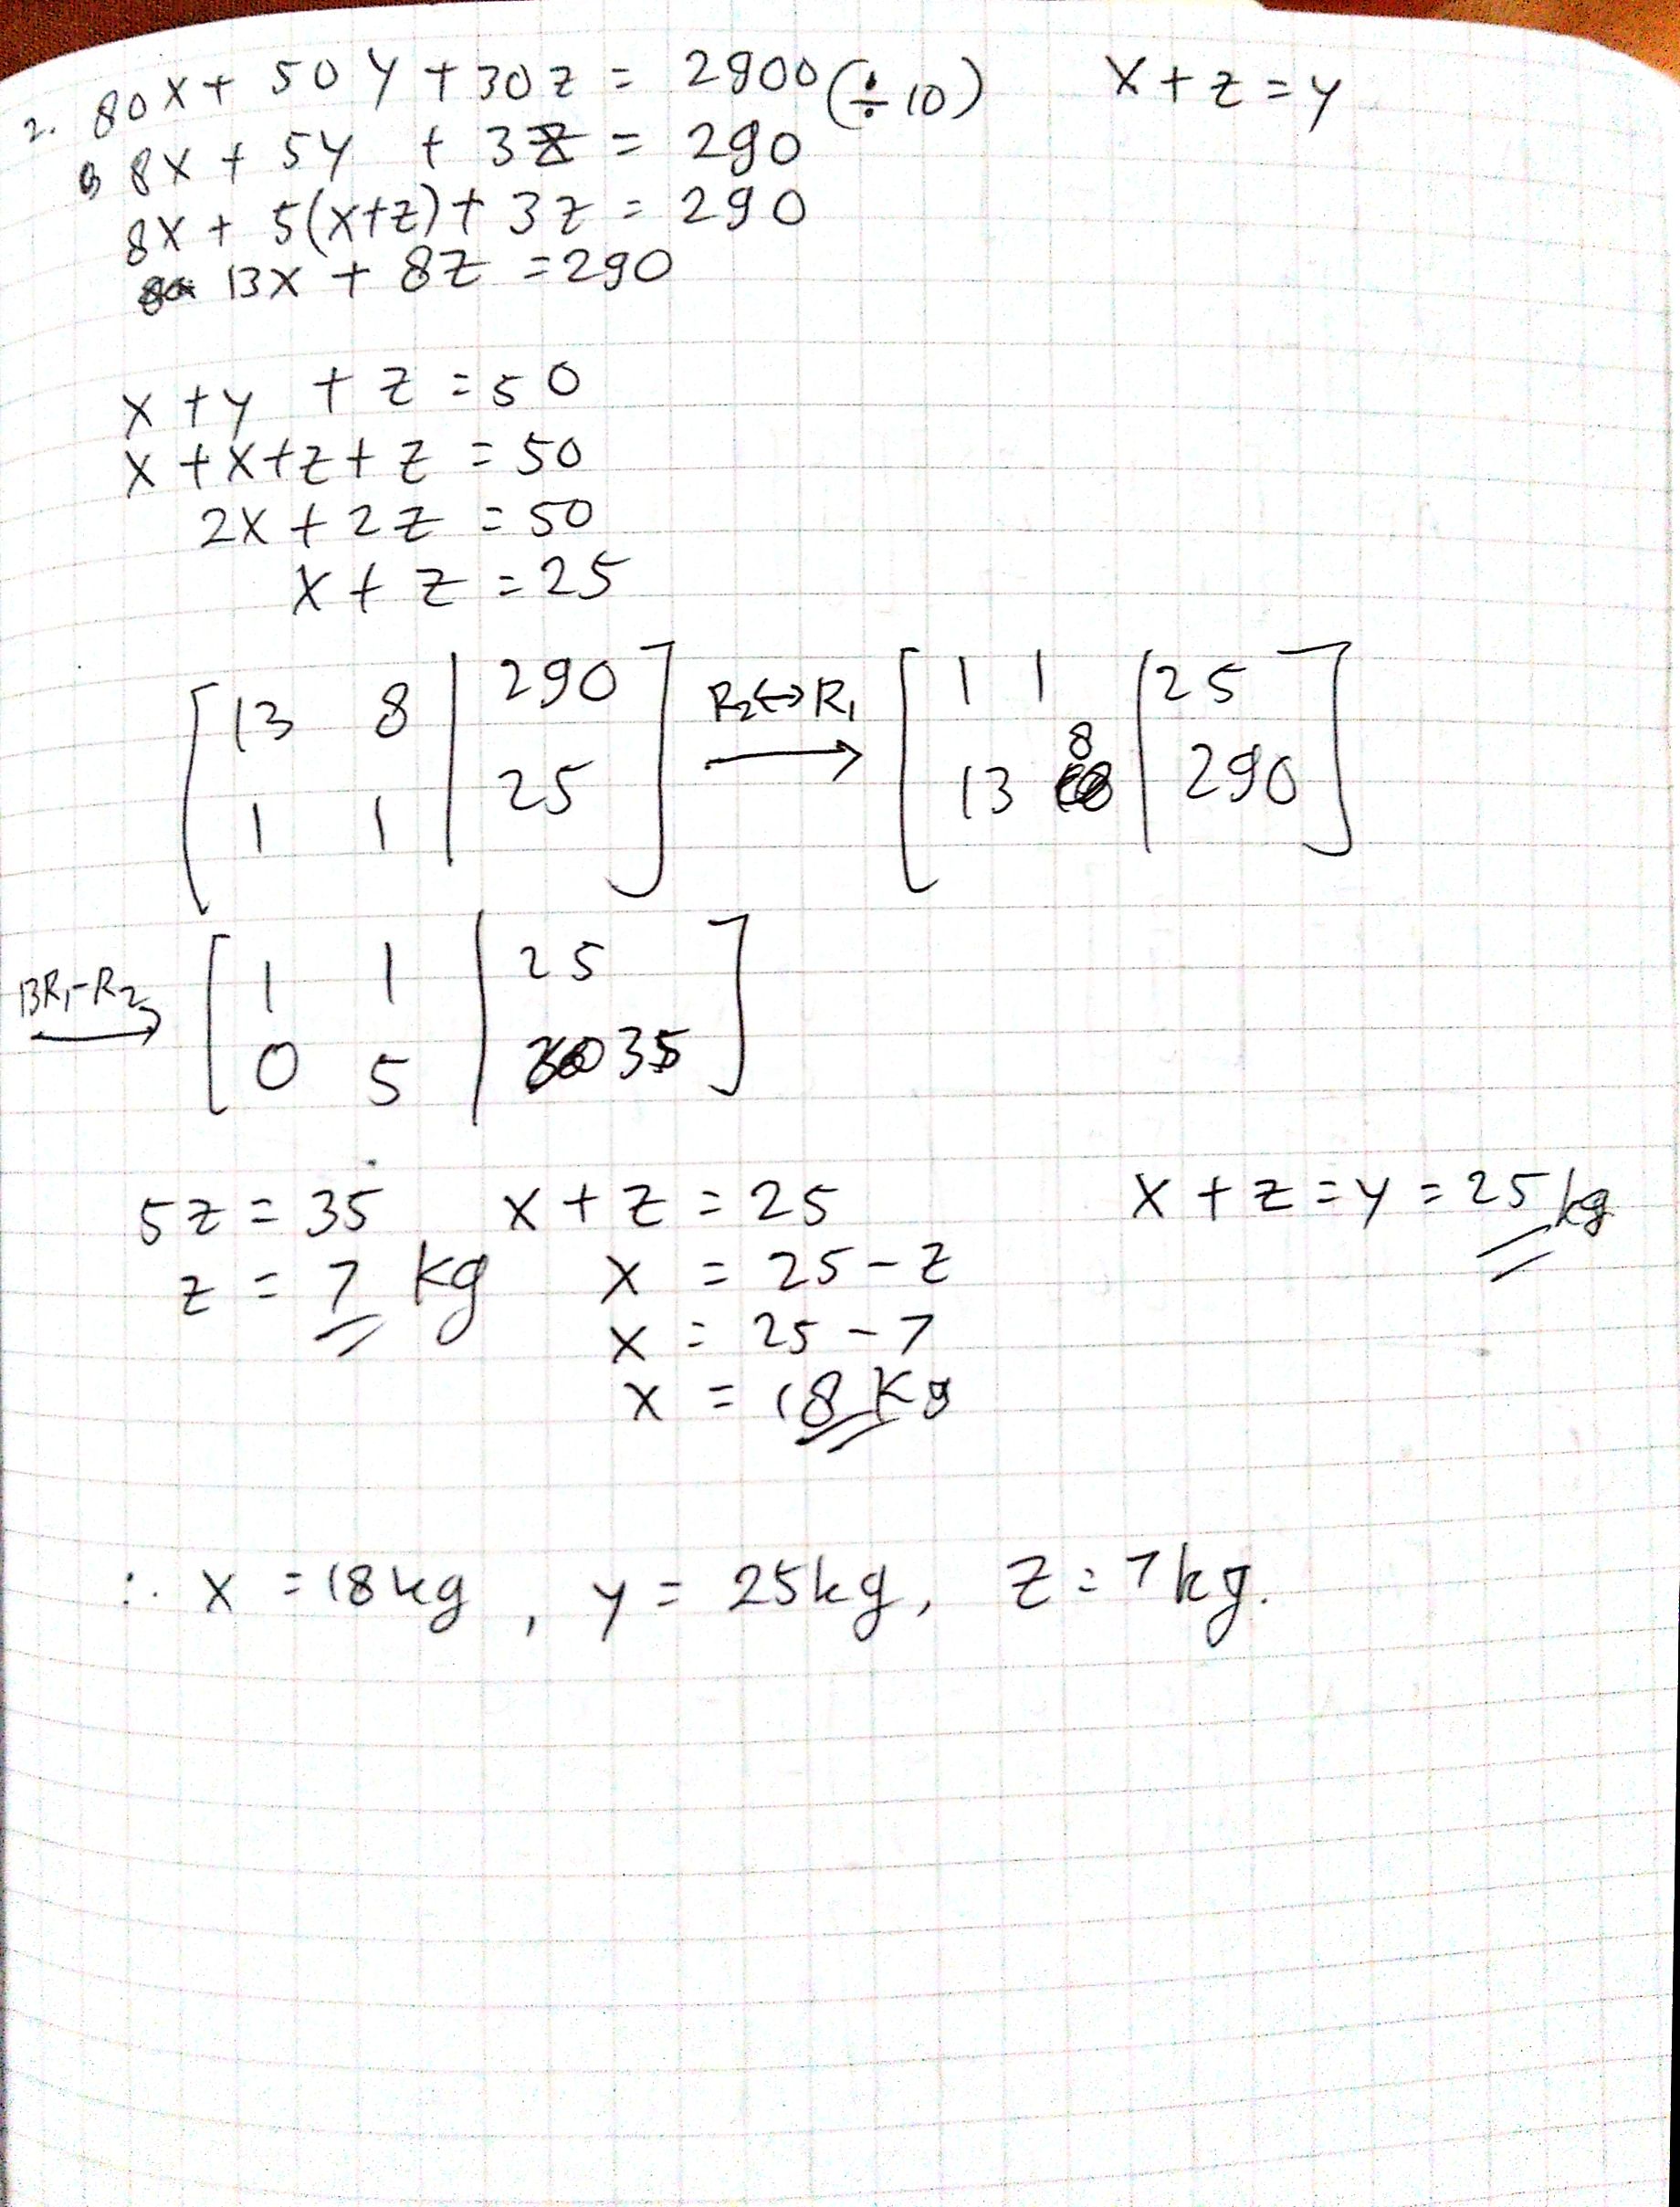 2. 80x + 50y + 30z = 2900 (÷ 10) x + z = y
8x + 5y + 3z = 290
8x + 5(x+z) + 3z = 290
13x + 8z = 290
x + y + z = 50
x + x + z + z = 50
2x + 2z = 50
x + z = 25
[13 8 | 290] R₂↔R₁ [1 1 | 25]
[1 1 | 25] → [13 8 | 290]
13R₁-R₂ [1 1 | 25]
→ [0 5 | 35]
5z = 35 x + z = 25 x + z = y = 25 kg
z = 7 kg x = 25 - z
x = 25 - 7
x = 18 kg
∴ x = 18kg, y = 25kg, z = 7kg.